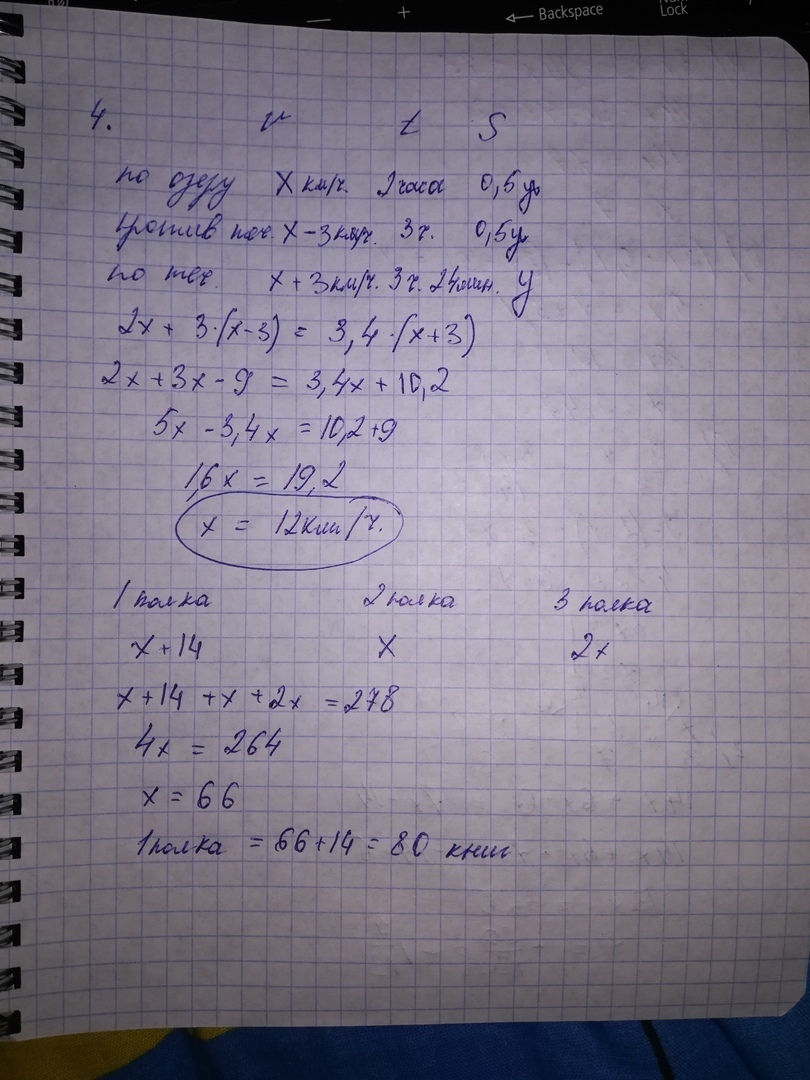 ← Backspace
Lock
4. v t S
по озеру x км/ч. 2 часа 0,5y
против теч. x-3км/ч. 3ч. 0,5y
по теч. x+3км/ч. 3ч. 24мин. y
2x + 3·(x-3) = 3,4·(x+3)
2x+3x-9 = 3,4x+10,2
5x -3,4x = 10,2+9
1,6x = 19,2
x = 12км/ч.
1 полка 2 полка 3 полка
x+14 x 2x
x+14 +x +2x = 278
4x = 264
x = 66
1 полка = 66+14 = 80 книг